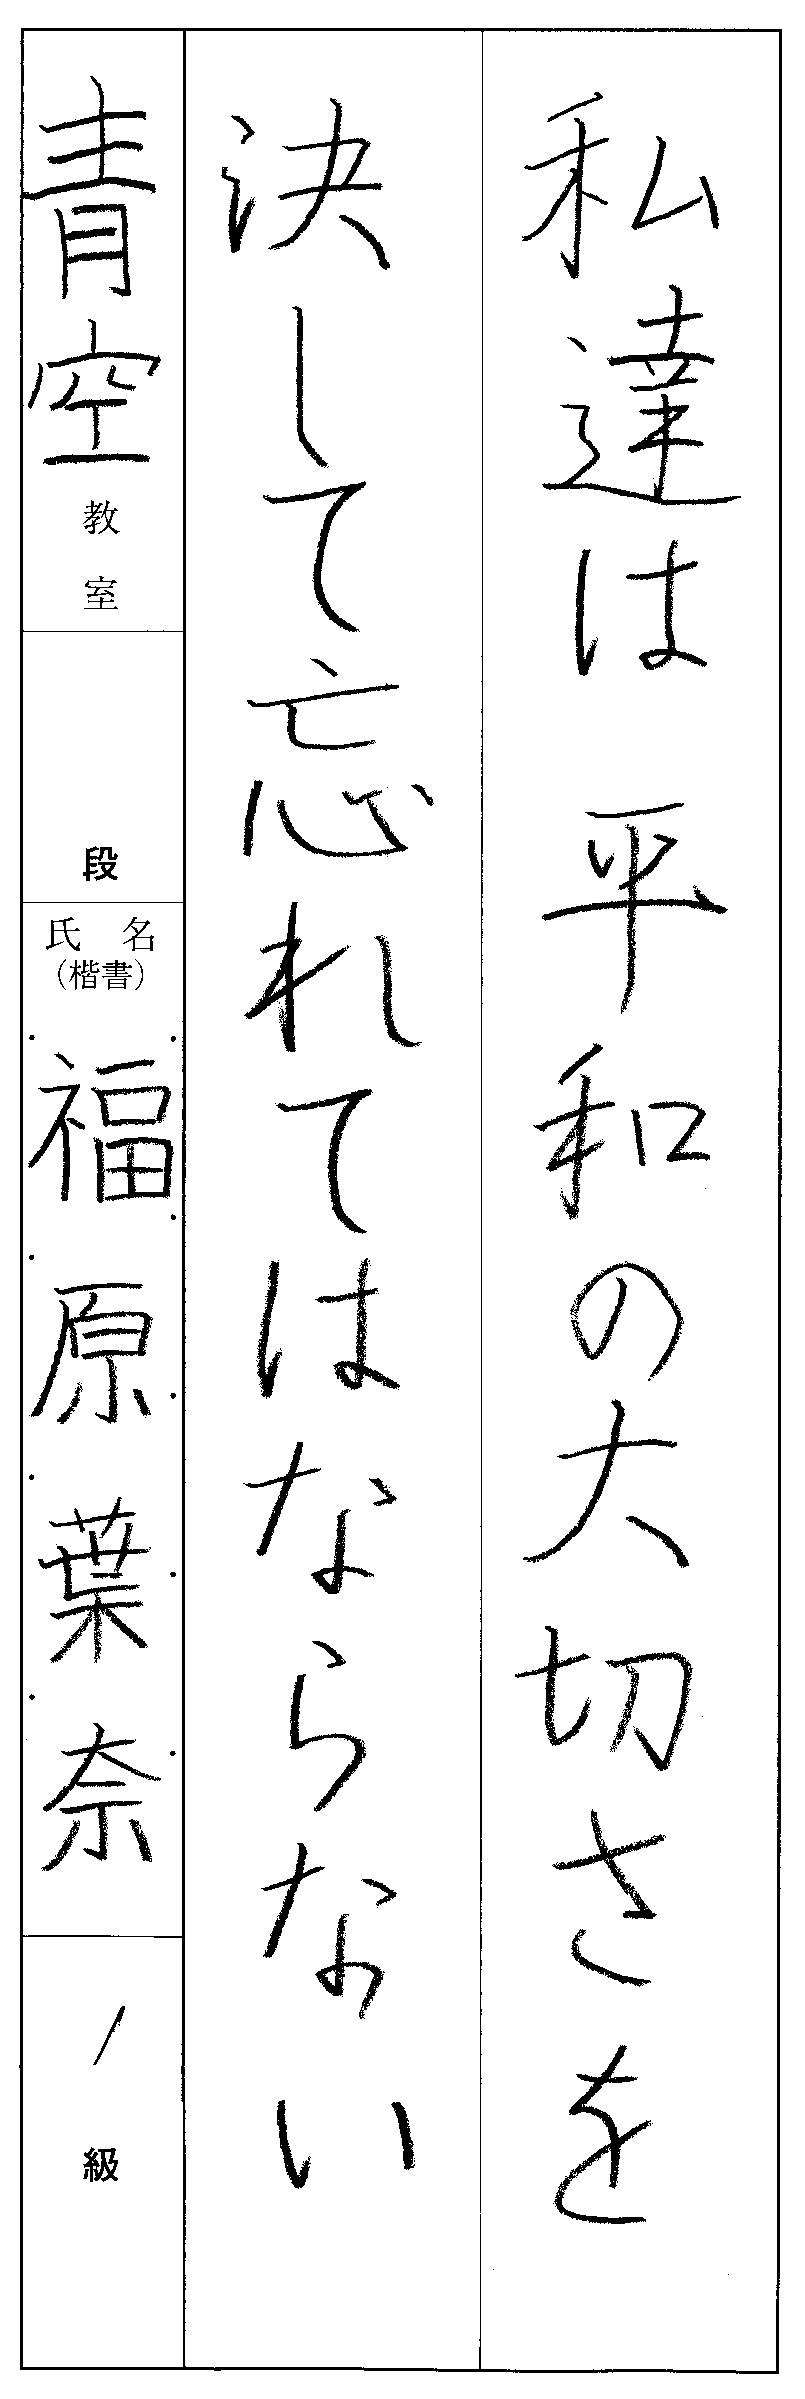 私達は平和の大切さを
決して忘れてはならない
青空教室
段
氏名
(楷書)
福原葉奈
1級